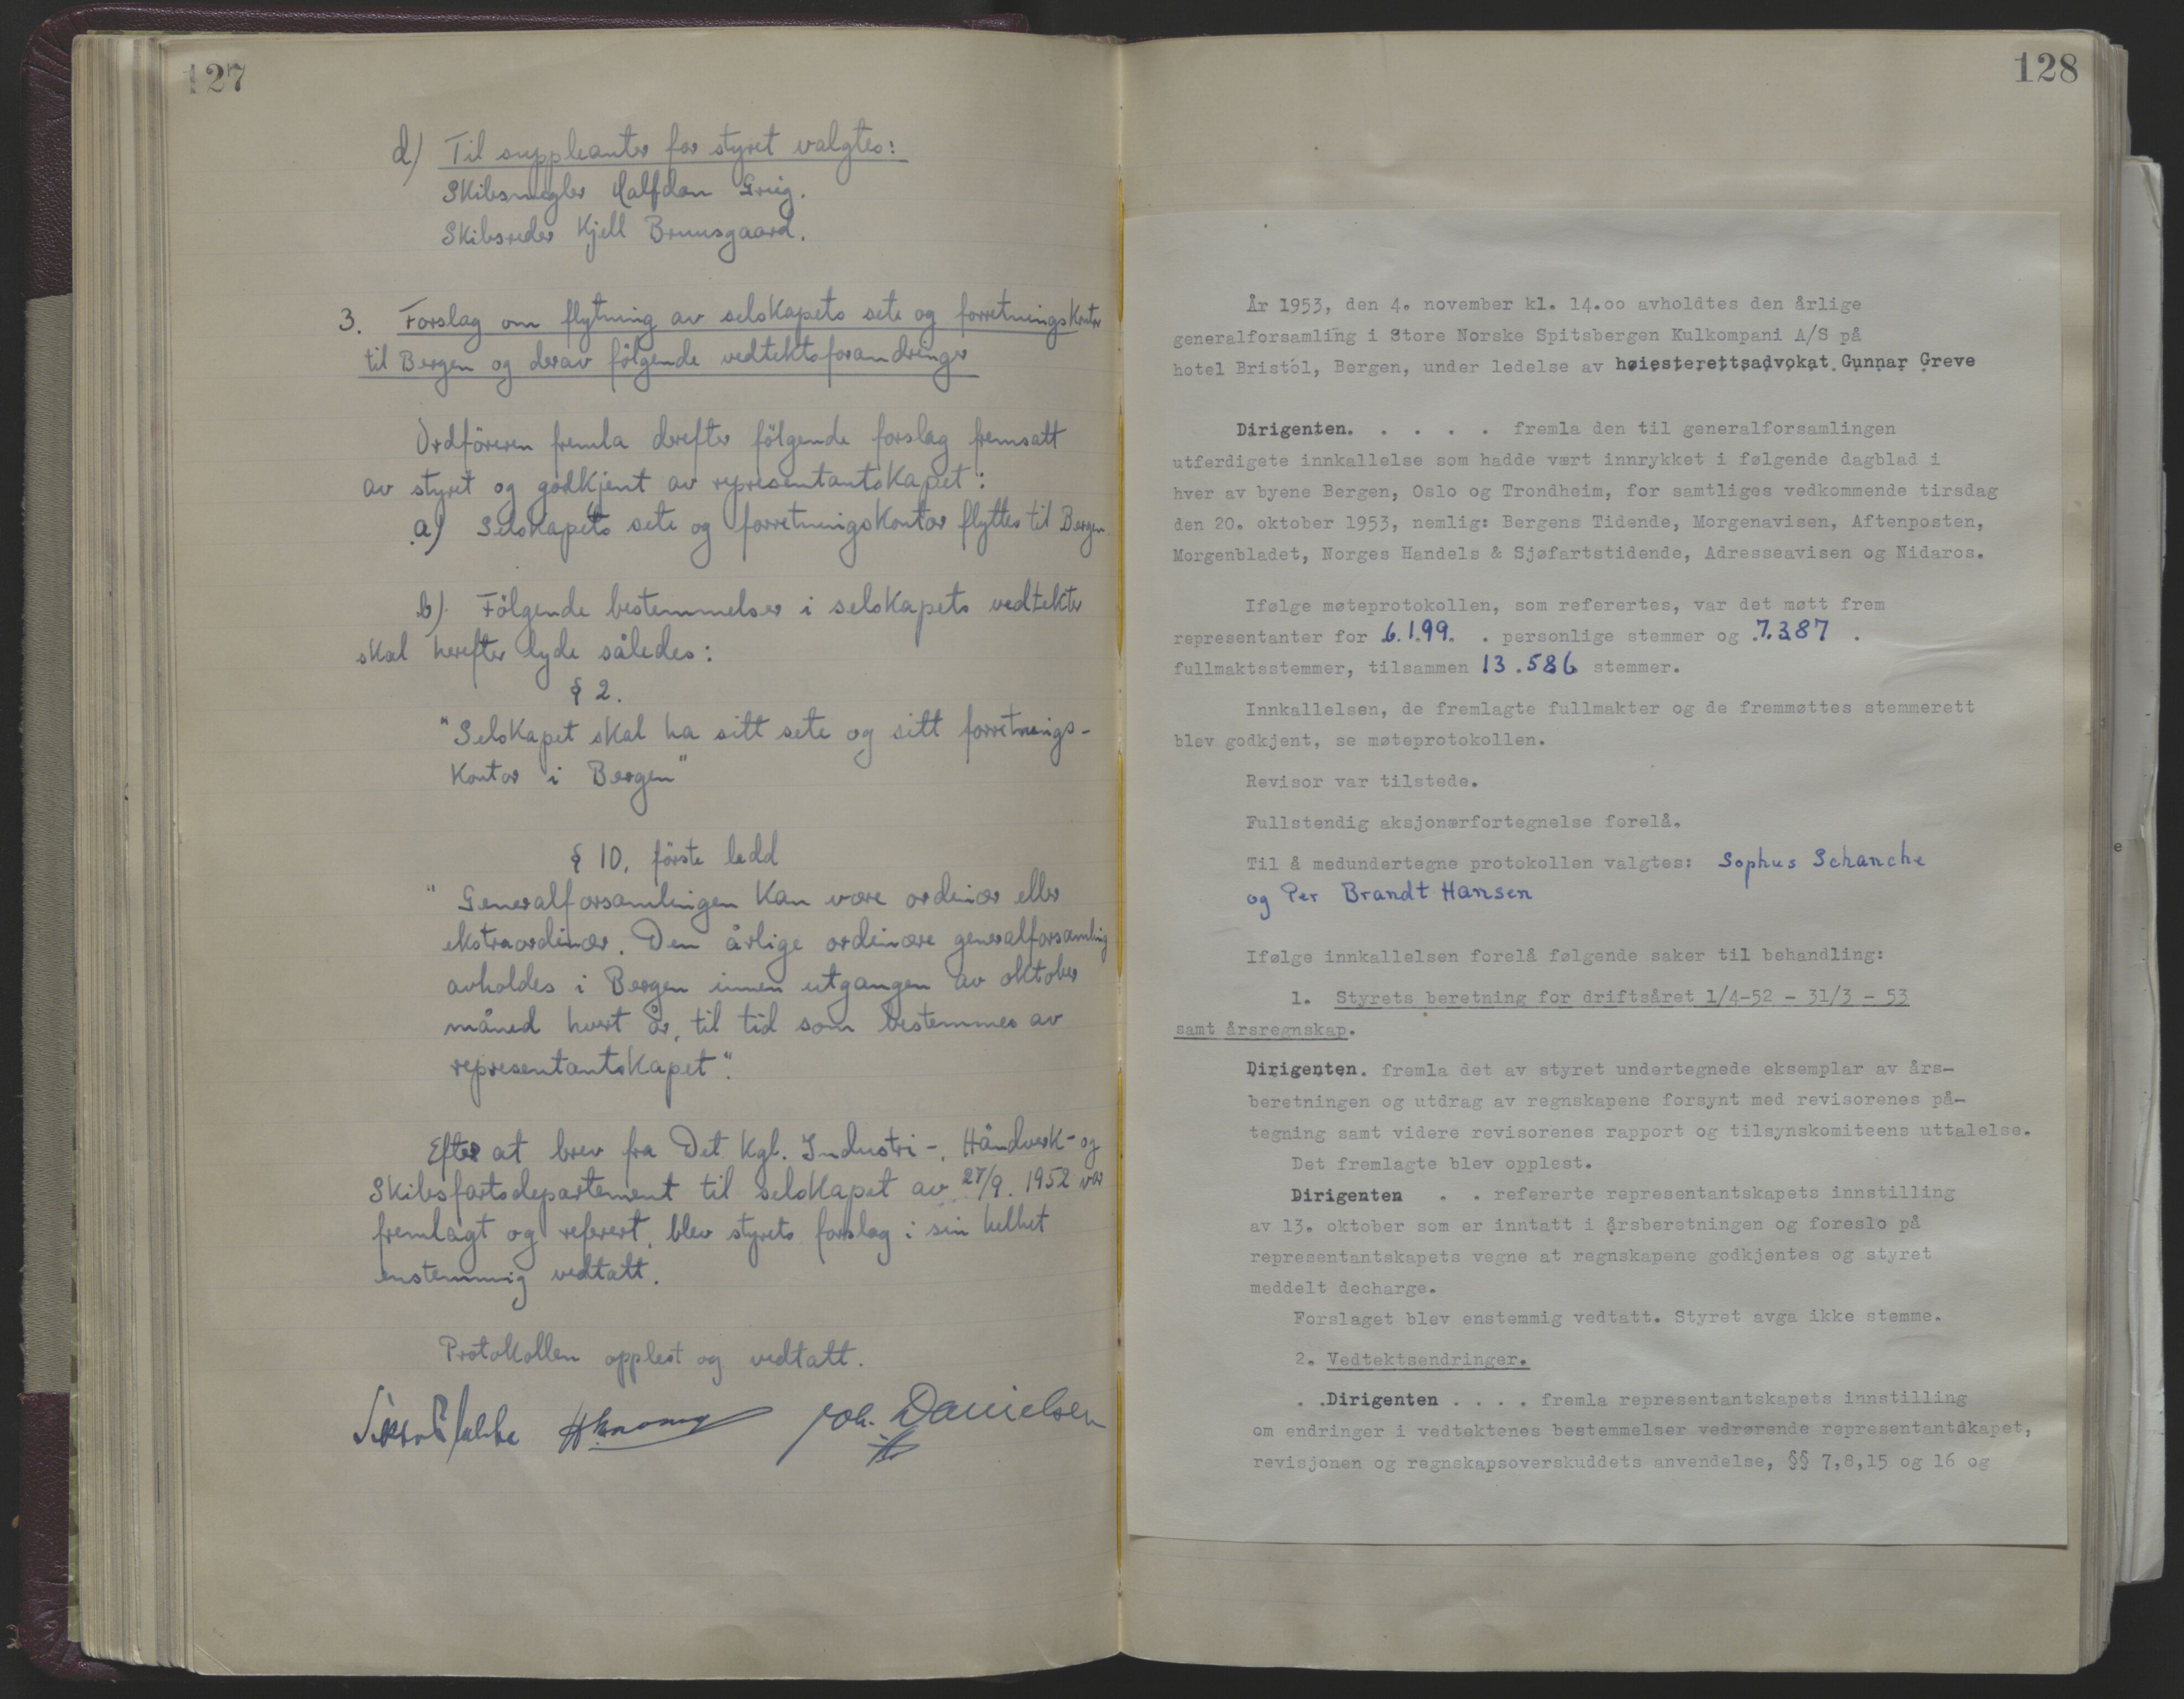 127
d) Til suppleanter for styret valgtes:
Skibsmegler Halfdan Grieg.
Skibsreder Kjell Bruusgaard.
3. Forslag om flytning av selskapets sete og forretningskontor
til Bergen og derav følgende vedtektsforandringer
Ordföreren fremla derefter fölgende forslag fremsatt
av styret og godkjent av representantskapet:
a) Selskapets sete og forretningskontor flyttes til Bergen.
b) Fölgende bestemmelser i selskapets vedtekter
skal herefter lyde således:
§ 2.
"Selskapet skal ha sitt sete og sitt forretnings-
kontor i Bergen"
§ 10, förste ledd
"Generalforsamlingen kan være ordinær eller
ekstraordinær. Den årlige ordinære generalforsamling
avholdes i Bergen innen utgangen av oktober
måned hvert år, til tid som bestemmes av
representantskapet".
Efter at brev fra Det Kgl. Industri-, Håndverk- og
Skibsfartsdepartement til selskapet av 27/9. 1952 var
fremlagt og referert, blev styrets forslag i sin helhet
enstemmig vedtatt.
Protokollen opplest og vedtatt.
Joh. Danielsen
128
År 1953, den 4. november kl. 14.oo avholdtes den årlige
generalforsamling i Store Norske Spitsbergen Kulkompani A/S på
hotel Bristol, Bergen, under ledelse av høiesterettsadvokat Gunnar Greve
Dirigenten. . . . . . fremla den til generalforsamlingen
utferdigete innkallelse som hadde vært innrykket i følgende dagblad i
hver av byene Bergen, Oslo og Trondheim, for samtliges vedkommende tirsdag
den 20. oktober 1953, nemlig: Bergens Tidende, Morgenavisen, Aftenposten,
Morgenbladet, Norges Handels & Sjøfartstidende, Adresseavisen og Nidaros.
Ifølge møteprotokollen, som referertes, var det møtt frem
representanter for 6.199. . personlige stemmer og 7.387 .
fullmaktsstemmer, tilsammen 13.586 stemmer.
Innkallelsen, de fremlagte fullmakter og de fremmøttes stemmerett
blev godkjent, se møteprotokollen.
Revisor var tilstede.
Fullstendig aksjonærfortegnelse forelå.
Til å medundertegne protokollen valgtes: Sophus Schanche
og Per Brandt Hansen
Ifølge innkallelsen forelå følgende saker til behandling:
1. Styrets beretning for driftsåret 1/4-52 - 31/3 - 53
samt årsregnskap.
Dirigenten. fremla det av styret undertegnede eksemplar av års-
beretningen og utdrag av regnskapene forsynt med revisorenes på-
tegning samt videre revisorenes rapport og tilsynskomiteens uttalelse.
Det fremlagte blev opplest.
Dirigenten . . refererte representantskapets innstilling
av 13. oktober som er inntatt i årsberetningen og foreslo på
representantskapets vegne at regnskapene godkjentes og styret
meddelt decharge.
Forslaget blev enstemmig vedtatt. Styret avga ikke stemme.
2. Vedtektsendringer.
. .Dirigenten . . . . fremla representantskapets innstilling
om endringer i vedtektenes bestemmelser vedrørende representantskapet,
revisjonen og regnskapsoverskuddets anvendelse, §§ 7,8,15 og 16 og